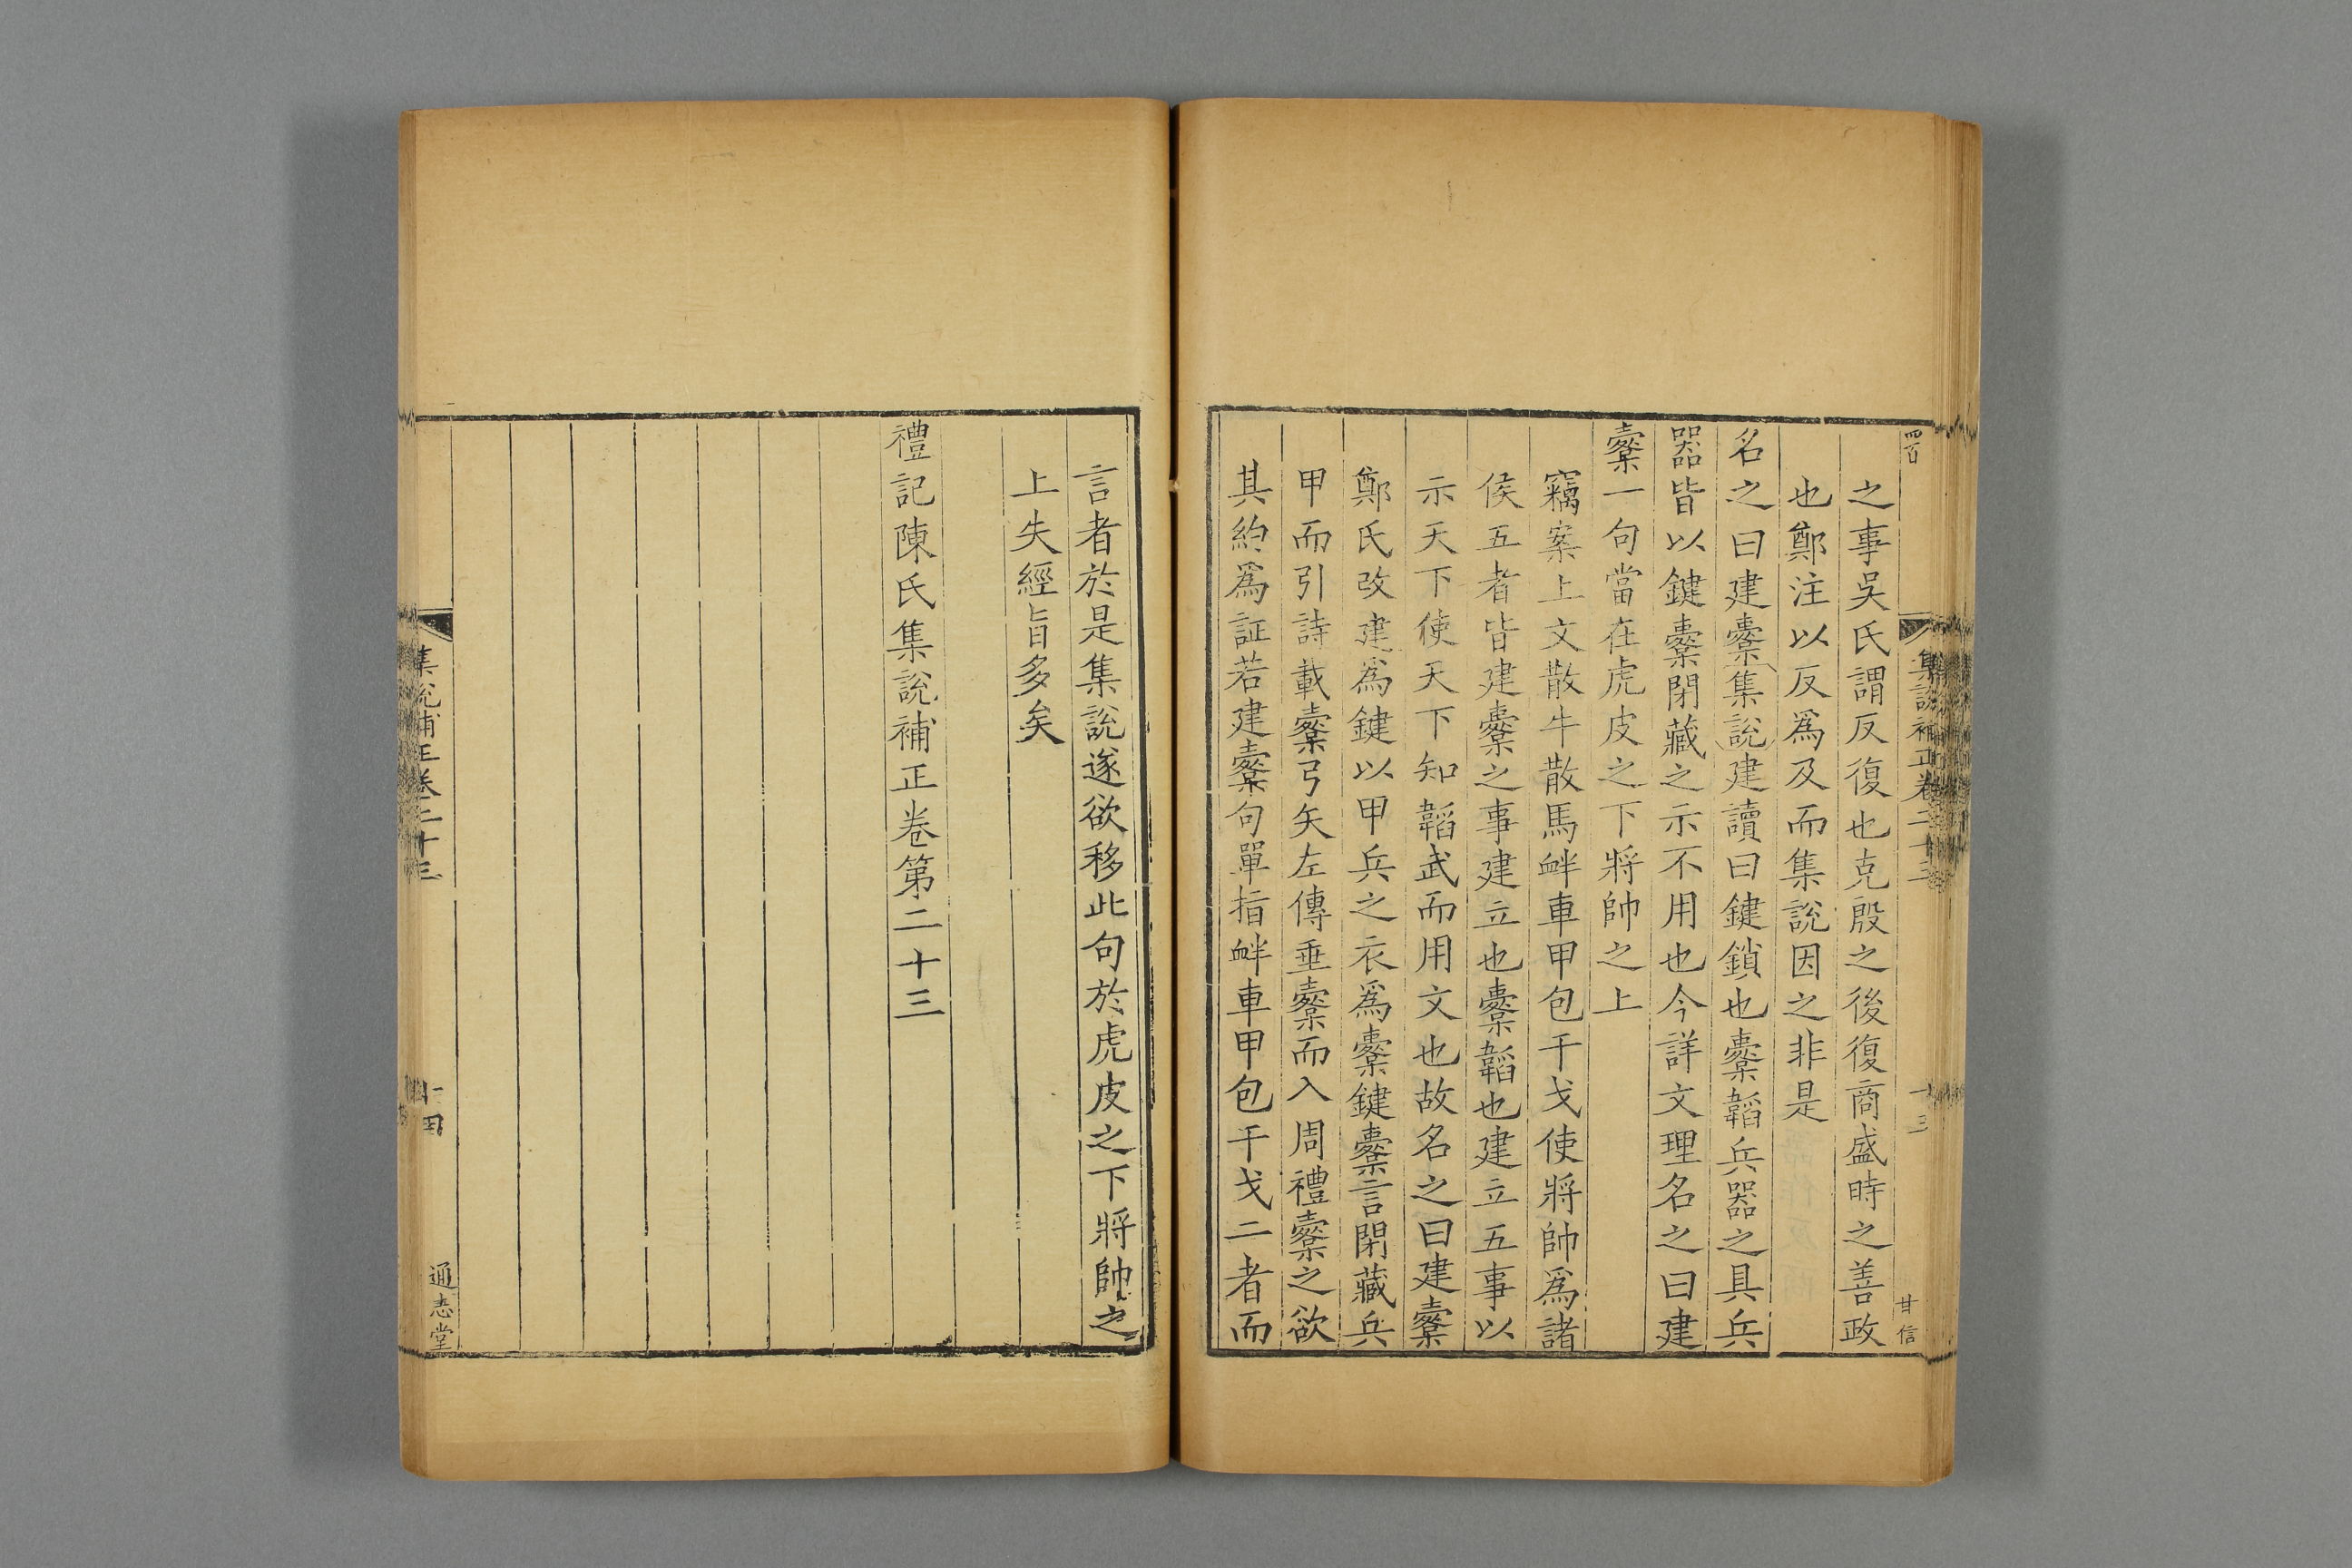 四百
集說補正卷二十三
十三
甘信
之事吳氏謂反復也克殷之後復商盛時之善政
也鄭注以反爲及而集說因之非是
名之曰建櫜集說建讀曰鍵鎖也櫜韜兵器之具兵
器皆以鍵櫜閉藏之示不用也今詳文理名之曰建
櫜一句當在虎皮之下將帥之上
竊案上文散牛散馬衅車甲包干戈使將帥爲諸
侯五者皆建櫜之事建立也櫜韜也建立五事以
示天下使天下知韜武而用文也故名之曰建櫜
鄭氏改建爲鍵以甲兵之衣爲櫜鍵櫜言閉藏兵
甲而引詩載櫜弓矢左傳垂櫜而入周禮櫜之欲
其約爲証若建櫜句單指衅車甲包干戈二者而
言者於是集說遂欲移此句於虎皮之下將帥之
上失經旨多矣
禮記陳氏集說補正卷第二十三
集說補正卷二十三
十四
通志堂